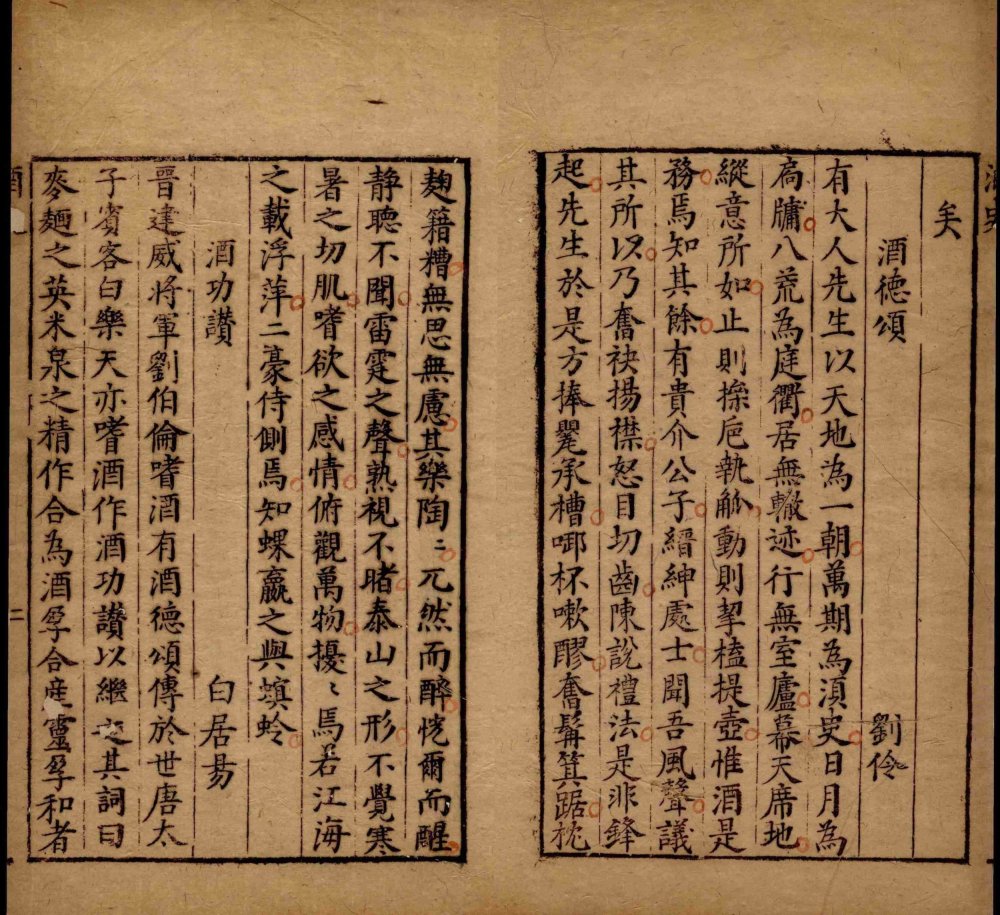 酒史
矣
酒德頌 劉伶
有大人先生以天地為一朝萬期為湏臾日月為
扄牖八荒為庭衢居無轍迹行無室廬幕天席地
縱意所如止則操巵執觚動則挈榼提壺惟酒是
務焉知其餘有貴介公子縉紳處士聞吾風聲議
其所以乃奮袂揚襟怒目切齒陳說禮法是非鋒
起先生於是方捧甖承槽啣杯嗽醪奮髯箕踞枕
麹籍糟無思無慮其樂陶〻兀然而醉恍爾而醒
静聽不聞雷霆之聲熟視不睹泰山之形不覺寒
暑之切肌嗜欲之感情俯觀萬物擾〻焉若江海
之載浮萍二豪侍側焉知蜾蠃之與螟蛉
酒功讃 白居易
晉達威將軍劉伯倫嗜酒有酒德頌傳於世唐太
子賓客白樂天亦嗜酒作酒功讃以繼之其詞曰
麥麯之英米泉之精作合為酒孕合産靈孕和者
二